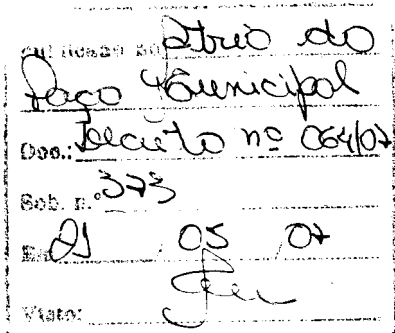 Publicado no Átrio do
Paço Municipal
Doc.: Decreto nº 064/07
Sob. n.º 373
Em 21 / 05 / 07
Visto: